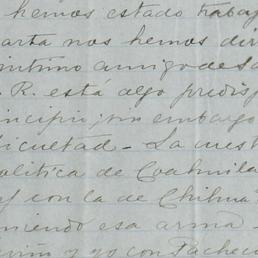 hemos estado traba
arta nos hemos dir
intimo amigo de
R. esta algo predis
incipio; sin embargo
ficultad - La cuest
olitica de Coahuila
y con la de Chihua
niendo esa arma
y yo con Pacheco